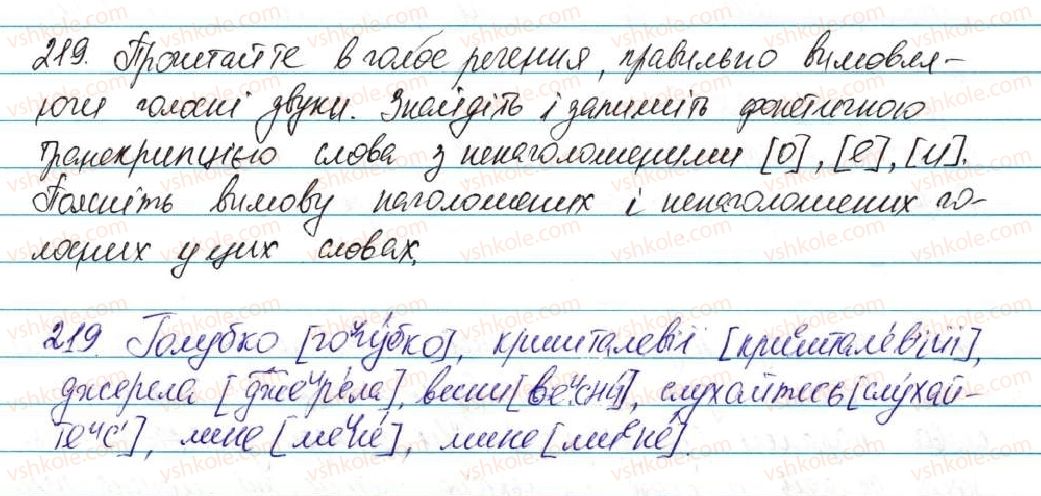 219. Прочитайте вголос речення, правильно вимовля-
ючи голосні звуки. Знайдіть і запишіть фонетичною
транскрипцією слова з ненаголошеними [о], [е], [и].
Поясніть вимову наголошених і ненаголошених го-
лосних у цих словах.
219. Голубко [гоᵘлу́бко], кришталевій [криᵉштале́вій],
джерела [джеᴴре́ла], весни [веᴴсни́], слухайтесь [слу́хай-
теᴴс'], мене [меᴴне́], мине [миᵉне́].
vshkole.com